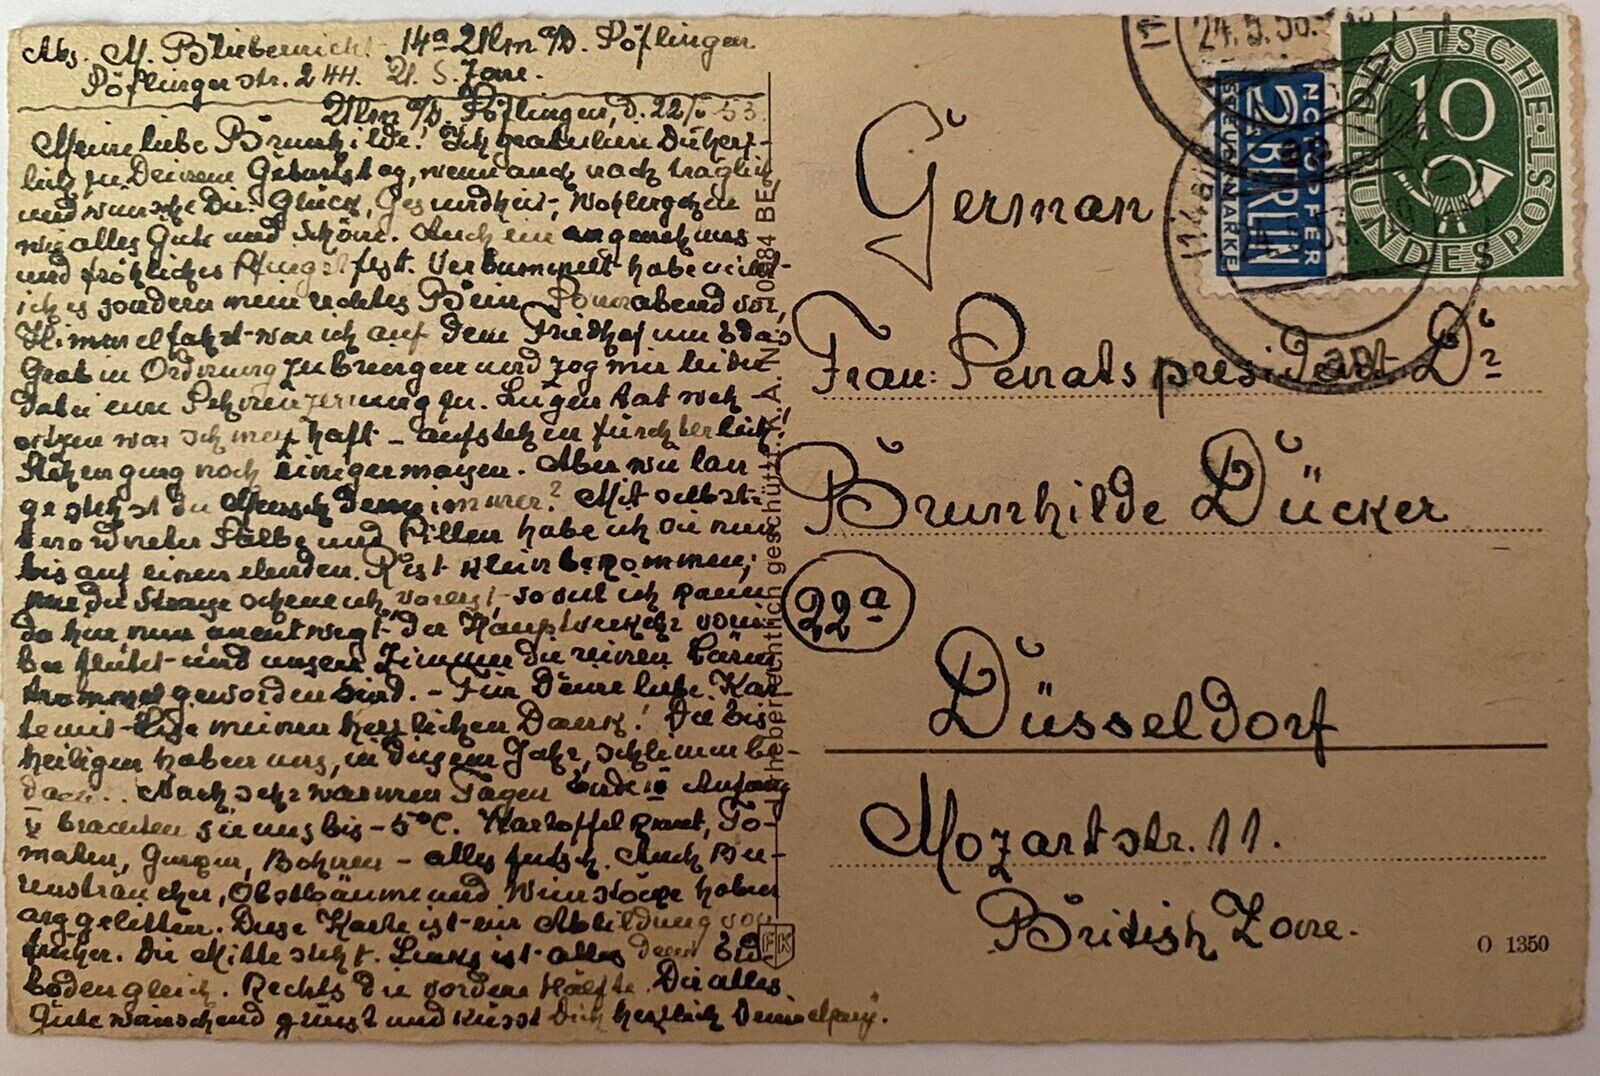 Abs. M. Bliebernicht 14a Ulm a/D. Söflingen.
Söflinger str. 244. U. S. Zone.
Ulm a/D. Söflingen, d. 22/ 53
Meine liebe Brunhilde! Ich gratuliere Dir herz-
lich zu Deinem Geburtstag, wenn auch nachträglich
und wünsche Dir Glück, Gesundheit, Wohlergehen
wie alles Gute und Schöne. Auch ein angenehmes
und fröhliches Pfingstfest. Verbummelt habe nicht
ich es sondern mein rechtes Bein. Sonnabend vor
Himmelfahrt war ich auf dem Friedhof um Edas
Grab in Ordnung zu bringen und zog mir leider
dabei eine Sehnenzerrung zu. Liegen tat weh -
sitzen war schmerzhaft - aufstehen fürchterlich!
Stehen ging noch einigermassen. Aber wie lan-
ge stehst du Mensch denn immer? Mit selbst-
verordneter Salbe und Pillen habe ich sie nun
bis auf einen elenden Rest klein bekommen;
nur die Strasse ochsen ich, vorerst so viel ich kann
da hier nun unentwegt der Hauptverkehr vorüber
flutet und unsere Zimmer die reinen Lärm
trommel geworden sind. - Für Deine liebe Kar-
te mit meinen herzlichen Dank! Die Eis-
heiligen haben uns, in diesem Jahr, schlimm be-
dacht. Nach sehr warmen Tagen Ende IV Anfang
V brachten sie uns bis - 5°C. Kartoffelkraut, To-
maten, Gurken, Bohnen - alles futsch. Auch Bee-
rensträucher, Obstbäume und Weinstöcke haben
arg gelitten. Diese Karte ist ein Abbildung von
früher. Die Mitte steht. Links ist alles dem Erd-
boden gleich. Rechts die vordere Hälfte. Dir alles
Gute wünschend grüsst und küsst Dich herzlich Deine
Urheberrechtlich geschützt K.A. Nr. 0984 BE
FK
German
Frau: Senatspresident Dr
Brunhilde Dücker
22a
Düsseldorf
Mozartstr. 11.
British Zone.
O 1350
24.5.53
2 NOTOPFER
BERLIN
STEUERMARKE
DEUTSCHE · BUNDESPOST
10